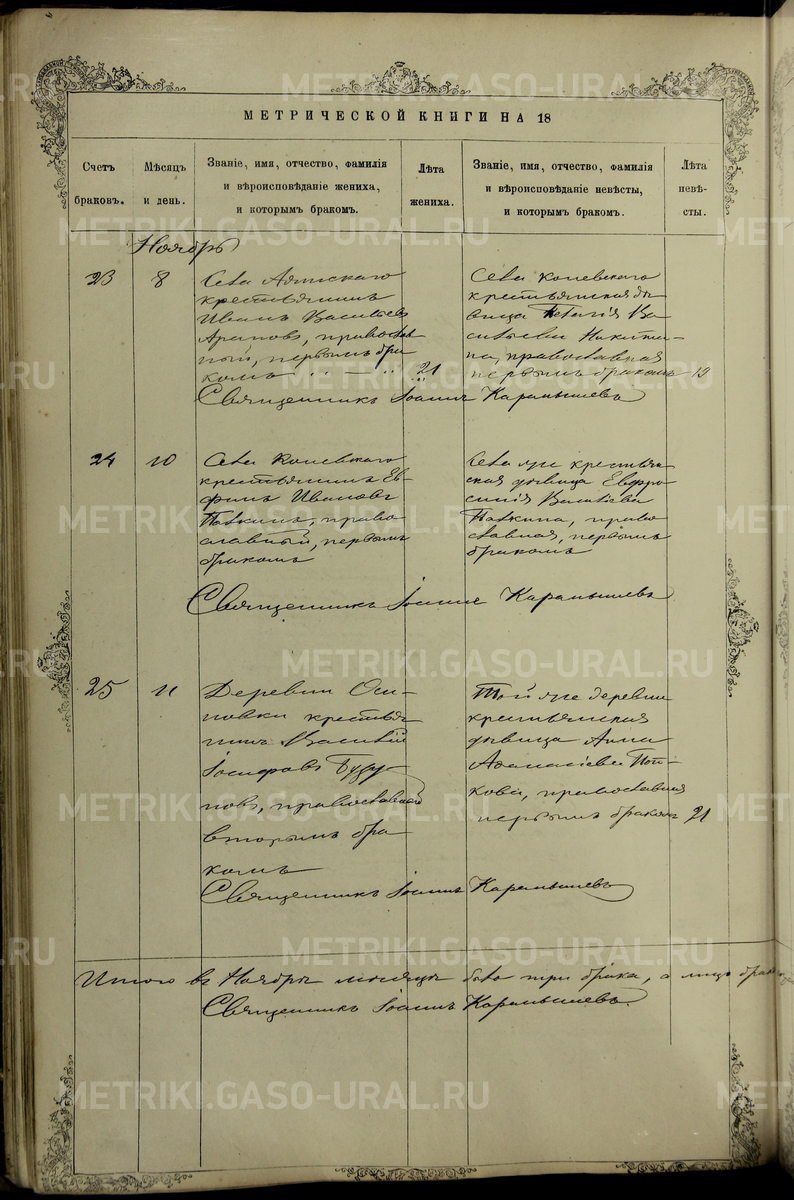 МЕТРИЧЕСКОЙ КНИГИ НА 18
Счетъ браковъ.
Мѣсяцъ и день.
Званіе, имя, отчество, фамилія
и вѣроисповѣданіе жениха,
и которымъ бракомъ.
Лѣта жениха.
Званіе, имя, отчество, фамилія
и вѣроисповѣданіе невѣсты,
и которымъ бракомъ.
Лѣта невѣ-
сты.
Ноябрь
23
8
Села
крестьянинъ
Иванъ Васильевъ
Араповъ, православ
ный, первымъ бра
комъ
21
Села Копевскаго
крестьянская дѣ
вица Ва
сильева Никити-
на, православная
первымъ бракомъ 19
Священникъ Іоаннъ Карамышевъ
24
10
Села Копевскаго
крестьянинъ Ев-
фимъ Ивановъ
право
славный, первымъ
бракомъ
Села же крестьян
ская дѣвица Евфро
синія Васильева
право
славная, первымъ
бракомъ
Священникъ Іоаннъ Карамышевъ
25
11
Деревни Оси-
новки крестья
нинъ Василій
Іосифовъ
новъ, православный
вторымъ бра
комъ
Той же деревни
крестьянская
дѣвица Анна
Аѳанасіева
кова, православная
первымъ бракомъ 21
Священникъ Іоаннъ Карамышевъ
Итого въ Ноябрѣ мѣсяцѣ было три брака, а лицъ
Священникъ Іоаннъ Карамышевъ.
METRIKI.GASO-URAL.RU